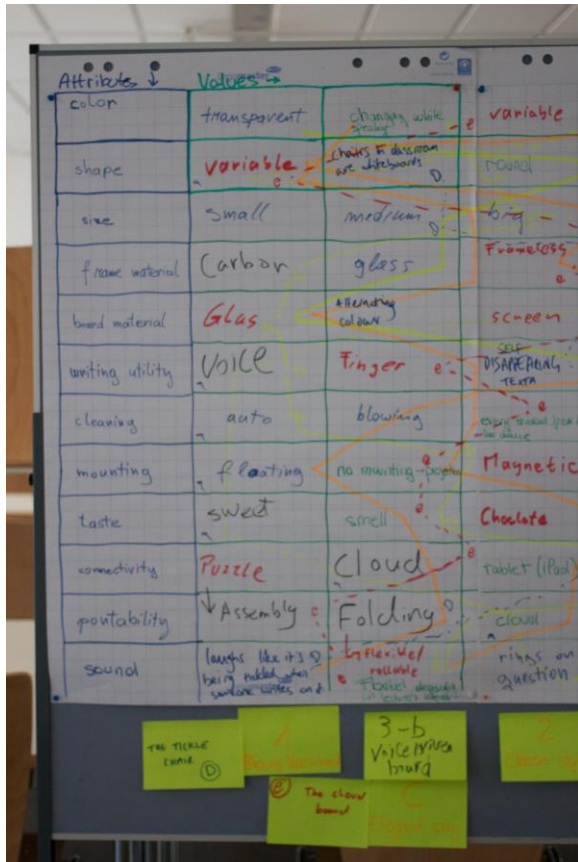 Attributes ↓ Values →
color transparent changing white variable
shape variable chairs in classroom
are whiteboards
D round
size small medium big
frame material Carbon glass Frameless
board material Glas Alternating
colours screen
writing utility VOICE Finger SELF
DISAPEARING
TEXTA
cleaning auto blowing
mounting floating no mounting - Magnetic
taste sweet smell Choclate
connectivity Puzzle Cloud tablet (iPad)
portability ↓ Assembly Folding cloud
sound laughs like it's
being tickled when
someone writes on it
Inflexible/
rollable
rings on
question
THE TICKLE
CHAIR
D
3-b
Voice driven
board
2
e The cloud
board